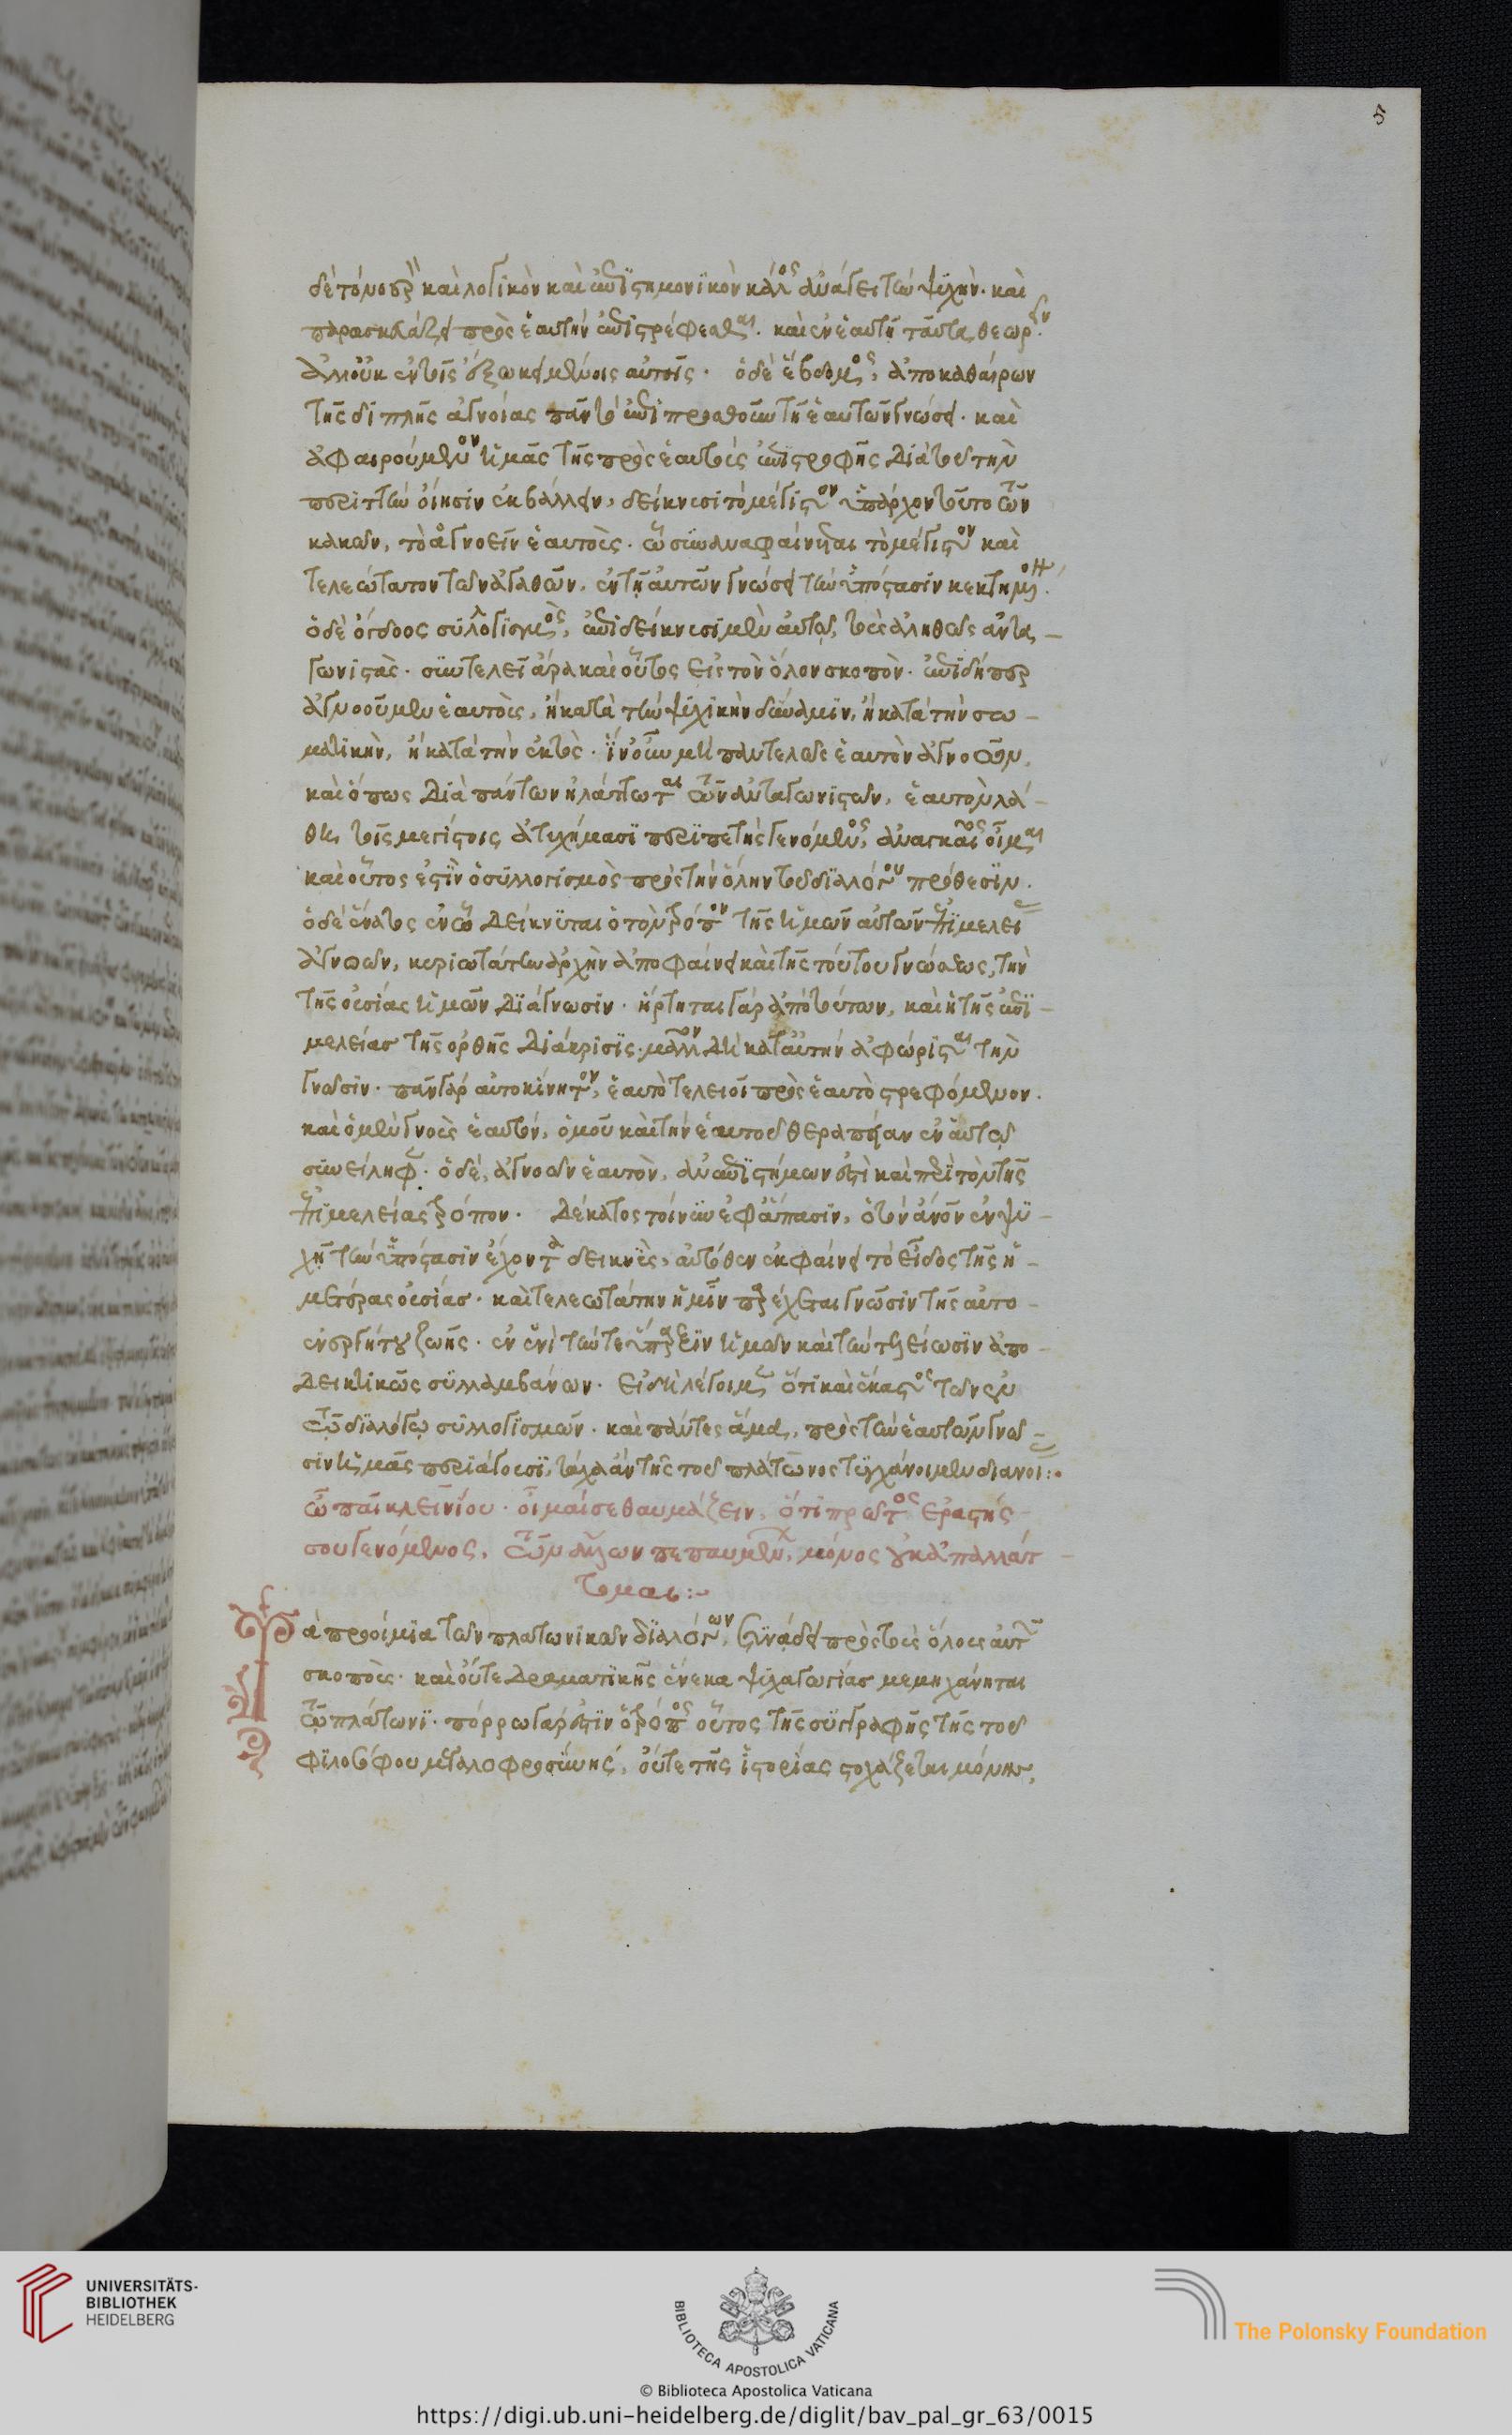 5
καὶ λογικὸν καὶ ἐπιστημονικὸν κάλλος ἀνάγει τὴν ψυχὴν. καὶ
παρασκευάζει πρὸς ἑαυτὴν ἐπιστρέφεσθαι. καὶ ἐν ἑαυτῇ ταῦτα θεωρεῖν.
ἀλλ' οὐκ ἐν τοῖς ἔξω κειμένοις αὐτοῖς. ὁ δὲ ἕβδομος, ἀποκαθαίρων
τῆς διπλῆς ἀγνοίας τῇ ἑαυτῶν γνώσει. καὶ
ἀφαιρούμενον ἡμᾶς τῆς πρὸς ἑαυτοὺς ἐπιστροφῆς διὰ τοῦ τὴν
περιττὴν οἴησιν ἐκβάλλειν, δείκνυσι τὸ μέγιστον ὑπάρχον τοῦτο τῶν
κακῶν, τὸ ἀγνοεῖν ἑαυτοὺς. ᾧ συναναφαίνεται τὸ μέγιστον καὶ
τελεώτατον τῶν ἀγαθῶν, ἐν τῇ αὐτῶν γνώσει τὴν ὑπόστασιν κεκτημένον.
ὁ δὲ ὄγδοος συλλογισμὸς, ἐπιδείκνυσι μὲν αὐτῷ, τοὺς ἀληθῶς ἀντα-
γωνιστὰς. συντελεῖ ἄρα καὶ οὗτος εἰς τὸν ὅλον σκοπὸν. ἐπειδήπερ
ἀγνοοῦμεν ἑαυτοὺς, ἢ κατὰ τὴν ψυχικὴν δύναμιν, ἢ κατὰ τὴν σω-
ματικὴν, ἢ κατὰ τὴν ἐκτὸς. ἵν' οὖν μὴ παντελῶς ἑαυτὸν ἀγνοῶν,
καὶ ὅπως διὰ πάντων ἠλάττωται τῶν ἀνταγωνιστῶν, ἑαυτὸν λά-
θῃ τοῖς μεγίστοις ἀτυχήμασι περιπετὴς γενόμενος, ἀναγκαῖος οἶμαι
καὶ οὗτος ἐστὶν ὁ συλλογισμὸς πρὸς τὴν ὅλην τοῦ διαλόγου πρόθεσιν.
ὁ δὲ ἔνατος ἐν ᾧ δείκνυται ὁ τὸν τρόπον τῆς ἡμῶν αὐτῶν ἐπιμελείας
ἀγνοῶν, κυριωτάτην ἀρχὴν ἀποφαίνει καὶ τῆς τούτου γνώσεως, τὴν
τῆς οὐσίας ἡμῶν διάγνωσιν. ἤρτηται γὰρ ἀπὸ τούτων, καὶ ἡ τῆς ἐπι-
μελείας τῆς ὀρθῆς διάκρισις. μᾶλλον δὴ κατ' αὐτὴν ἀφώρισται τὴν
γνῶσιν. πᾶν γὰρ αὐτοκίνητον, ἑαυτὸ τελειοῖ πρὸς ἑαυτὸ στρεφόμενον.
καὶ ὁ μὲν γνοὺς ἑαυτόν, ὁμοῦ καὶ τὴν ἑαυτοῦ θεραπείαν ἐν αὐτῷ
συνείληφε. ὁ δὲ, ἀγνοῶν ἑαυτὸν, ἀνεπιστήμων ἐστὶ καὶ περὶ τὸν τῆς
ἐπιμελείας τρόπον. Δέκατος τοίνυν ἐφ' ἅπασιν, ὁ τὸν ἄνον ἐν ψυ-
χῇ τὴν ὑπόστασιν ἔχοντα δεικνὺς, αὐτόθεν ἐκφαίνει τὸ εἶδος τῆς ἡ-
μετέρας οὐσίας. καὶ τελεωτάτην ἡμῖν παρέχεται γνῶσιν τῆς αὐτο-
ενεργήτου ζωῆς. ἐν ἑνὶ τήν τε ὕπαρξιν ἡμῶν καὶ τὴν τελείωσιν ἀπο-
δεικτικῶς συλλαμβάνων. εἰ δὴ λέγοιμεν ὅτι καὶ ἕκαστος τῶν ἐν
τῷ διαλόγῳ συλλογισμῶν. καὶ πάντες ἅμα, πρὸς τὴν ἑαυτῶν γνῶ-
σιν ἡμᾶς περιάγουσι, τάχα ἂν τῆς τοῦ πλάτωνος τυγχάνοιμεν διανοίας:
ὦ παῖ κλεινίου. οἶμαί σε θαυμάζειν, ὅτι πρῶτος ἐραστής
σου γενόμενος, τῶν ἄλλων πεπαυμένων, μόνος οὐκ ἀπαλλάτ-
τομαι:-
Τὰ προοίμια τῶν πλατωνικῶν διαλόγων, συνᾴδει πρὸς τοὺς ὅλους αὐτῶν
σκοποὺς. καὶ οὔτε δραματικῆς ἕνεκα ψυχαγωγίας μεμηχάνηται
τῷ πλάτωνι. πόρρω γάρ ἐστιν ὁ τρόπος οὗτος τῆς συγγραφῆς τῆς τοῦ
φιλοσόφου μεγαλοφροσύνης, οὔτε τῆς ἱστορίας στοχάζεται μόνης,
UNIVERSITÄTS-
BIBLIOTHEK
HEIDELBERG
BIBLIOTECA APOSTOLICA VATICANA
© Biblioteca Apostolica Vaticana
The Polonsky Foundation
https://digi.ub.uni-heidelberg.de/diglit/bav_pal_gr_63/0015